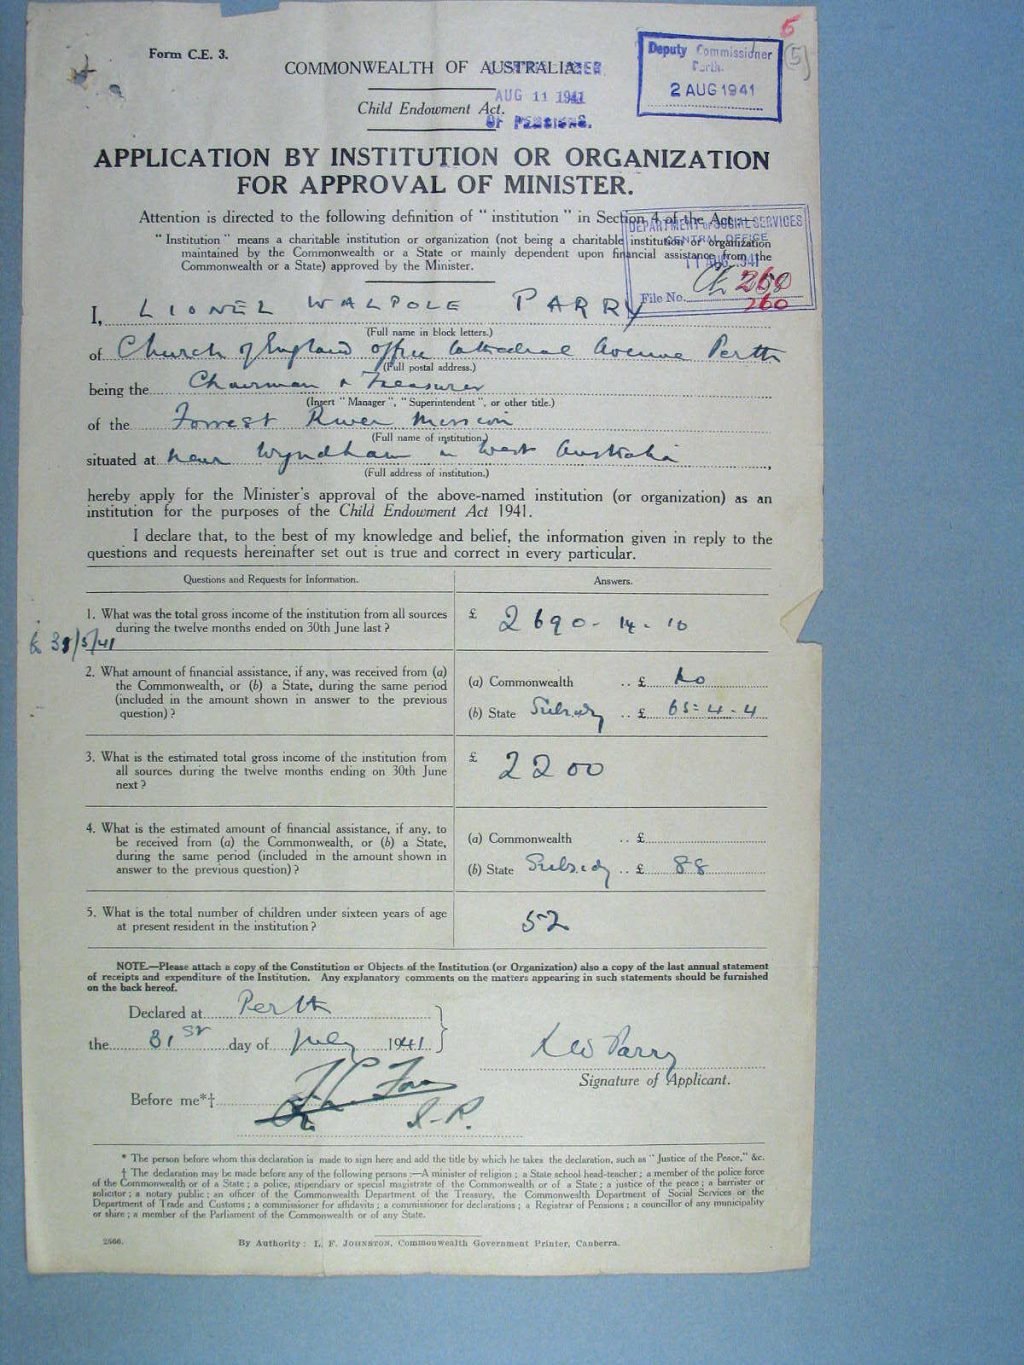 6
(5)
Form C.E. 3.
COMMONWEALTH OF AUSTRALIA.
Deputy Commissioner
Perth.
2 AUG 1941
AUG 11 1941
OF PENSIONS.
Child Endowment Act.
APPLICATION BY INSTITUTION OR ORGANIZATION
FOR APPROVAL OF MINISTER.
Attention is directed to the following definition of "institution" in Section 4 of the Act:—
DEPARTMENT OF SOCIAL SERVICES
CENTRAL OFFICE
11 AUG 1941
File No.
260
"Institution" means a charitable institution or organization (not being a charitable institution or organization
maintained by the Commonwealth or a State or mainly dependent upon financial assistance from the
Commonwealth or a State) approved by the Minister.
I, LIONEL WALPOLE PARRY
(Full name in block letters.)
of Church of England office Cathedral Avenue Perth
(Full postal address.)
being the Chairman & Treasurer
(Insert "Manager", "Superintendent", or other title.)
of the Forrest River Mission
(Full name of institution.)
situated at near Wyndham in West Australia,
(Full address of institution.)
hereby apply for the Minister's approval of the above-named institution (or organization) as an
institution for the purposes of the Child Endowment Act 1941.
I declare that, to the best of my knowledge and belief, the information given in reply to the
questions and requests hereinafter set out is true and correct in every particular.
Questions and Requests for Information. Answers.
1. What was the total gross income of the institution from all sources
during the twelve months ended on 30th June last?
£ 2690-14-10
31/5/41
2. What amount of financial assistance, if any, was received from (a)
the Commonwealth, or (b) a State, during the same period
(included in the amount shown in answer to the previous
question)?
(a) Commonwealth .. £ No
(b) State Subsidy .. £ 65=4-4
3. What is the estimated total gross income of the institution from
all sources during the twelve months ending on 30th June
next?
£ 2200
4. What is the estimated amount of financial assistance, if any, to
be received from (a) the Commonwealth, or (b) a State,
during the same period (included in the amount shown in
answer to the previous question)?
(a) Commonwealth .. £
(b) State Subsidy .. £ 88
5. What is the total number of children under sixteen years of age
at present resident in the institution?
52
NOTE.—Please attach a copy of the Constitution or Objects of the Institution (or Organization) also a copy of the last annual statement
of receipts and expenditure of the Institution. Any explanatory comments on the matters appearing in such statements should be furnished
on the back hereof.
Declared at Perth
the 31st day of July 1941
L W Parry
Signature of Applicant.
Before me*†
J.P.
* The person before whom this declaration is made to sign here and add the title by which he takes the declaration, such as "Justice of the Peace," &c.
† The declaration may be made before any of the following persons:—A minister of religion; a State school head-teacher; a member of the police force
of the Commonwealth or of a State; a police, stipendiary or special magistrate of the Commonwealth or of a State; a justice of the peace; a barrister or
solicitor; a notary public; an officer of the Commonwealth Department of the Treasury, the Commonwealth Department of Social Services or the
Department of Trade and Customs; a commissioner for affidavits; a commissioner for declarations; a Registrar of Pensions; a councillor of any municipality
or shire; a member of the Parliament of the Commonwealth or of any State.
2566. By Authority: L. F. JOHNSTON, Commonwealth Government Printer, Canberra.